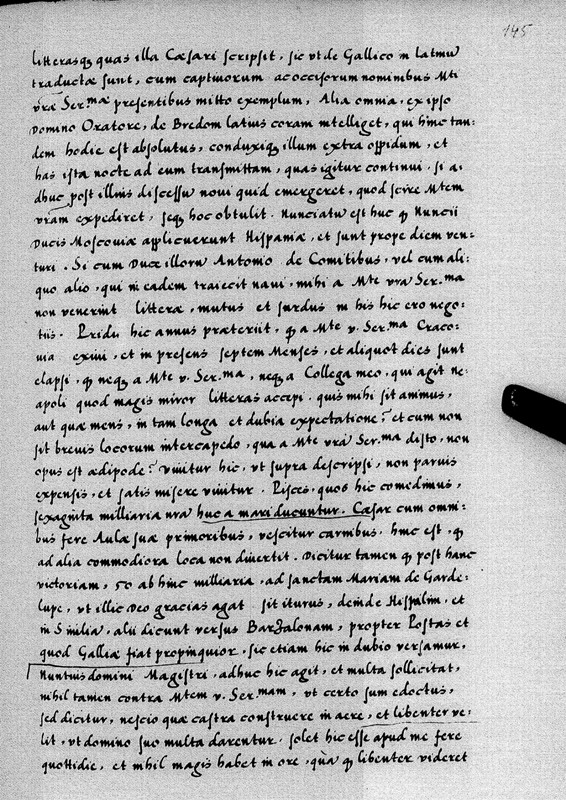 145
litterasq̃ quas illa Cæsari scripsit, sic vt de Gallico in Latinũ
traductæ sunt, cum captivorum ac occisorum nominibus Mti
vræ Ser.mæ presentibus mitto exemplum, Alia omnia, ex ipso
Domino Oratore, de Bredom latius coram intelliget, qui hinc tan:
dem hodie est absolutus, conduxiq̃ illum extra oppidum, et
has ista nocte ad eum transmittam, quas igitur continui, si a:
dhuc post illius discessũ novi quid emergeret, quod scire Mtem
vram expediret, seq̃ hoc obtulit. Nunciatũ est huc q̃ Nuncii
Ducis Moscoviæ applicuerunt Hispaniæ, et sunt prope diem ven:
turi. Si cum Duce illorũ Antonio de Comitibus, vel cum ali:
quo alio, qui in eadem traiecit navi, mihi a Mte vra Ser.ma
non venerint litteræ, mutus et surdus in his hic ero nego:
tiis. Pridie hic annus præteriit, q̃ a Mte v. Ser.ma Craco:
via exivi, et in presens septem Menses, et aliquot dies sunt
elapsi, q̃ neq̃ a Mte v. Ser.ma, neq̃ a Collega meo, qui agit Ne:
apoli quod magis miror litteras accepi, quis mihi sit animus,
aut quæ mens, in tam longa et dubia expectatione? et cum non
sit brevis locorum intercapedo, qua a Mte vra Ser.ma disto, non
opus est ædipode? vivitur hic, vt supra descripsi, non parvis
expensis, et satis misere vivitur. Pisces, quos hic comedimus,
sexaginta milliaria nra huc a mari ducuntur. Cæsar cum omni:
bus fere Aulæ suæ primoribus, vescitur carnibus. hinc est, q̃
ad alia commodiora loca non divertit. Dicitur tamen q̃ post hanc
victoriam, 50 ab hinc milliaria, ad sanctam Mariam de Garde:
lupe, vt illic Deo gracias agat sit iturus, deinde Hispalim, et
in Sivilia, alii dicunt versus Barzalonam, propter Postas et
quod Galliæ fiat propinquior, sic etiam hic in dubio versamur.
Nuntius domini Magistri, adhuc hic agit, et multa sollicitat,
nihil tamen contra Mtem v. Ser.mam, vt certo sum edoctus,
sed dicitur, nescio quæ castra construere in aere, et libenter ve:
lit, vt domino suo multa darentur. solet hic esse apud me fere
quottidie, et nihil magis habet in ore, quã q̃ libenter videret